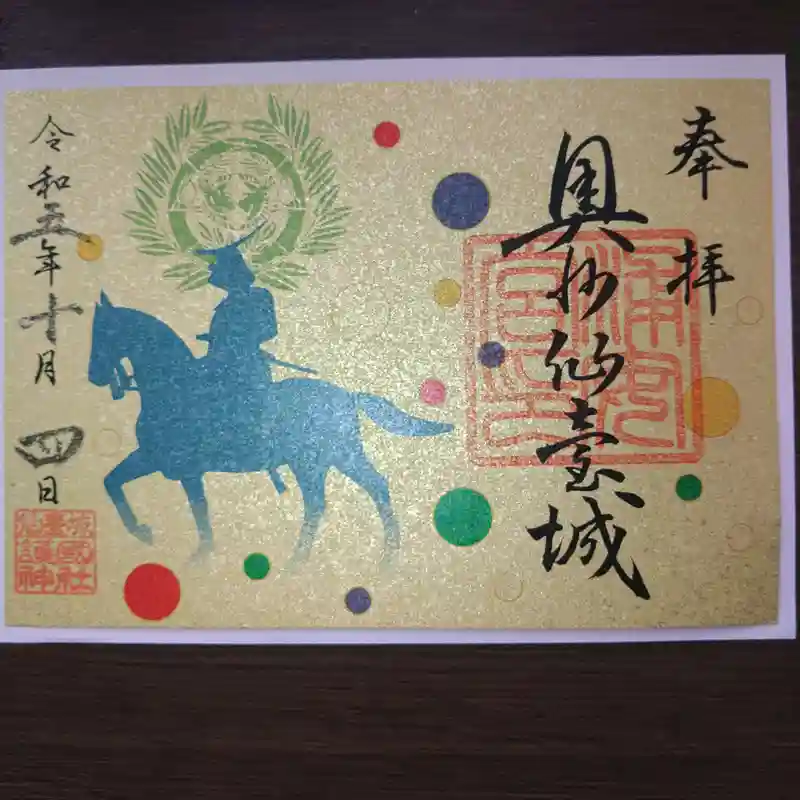 奉拝
奥州仙臺城
令和五年十月四日